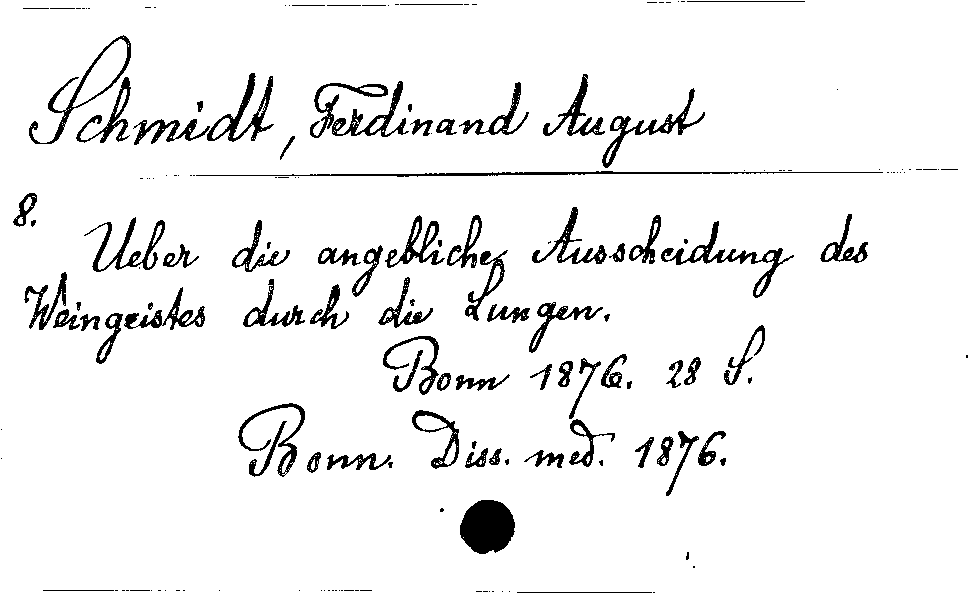 Schmidt, Ferdinand August
8.
Ueber die angebliche Ausscheidung des
Weingeistes durch die Lungen.
Bonn 1876. 28 S.
Bonn. Diss. med. 1876.